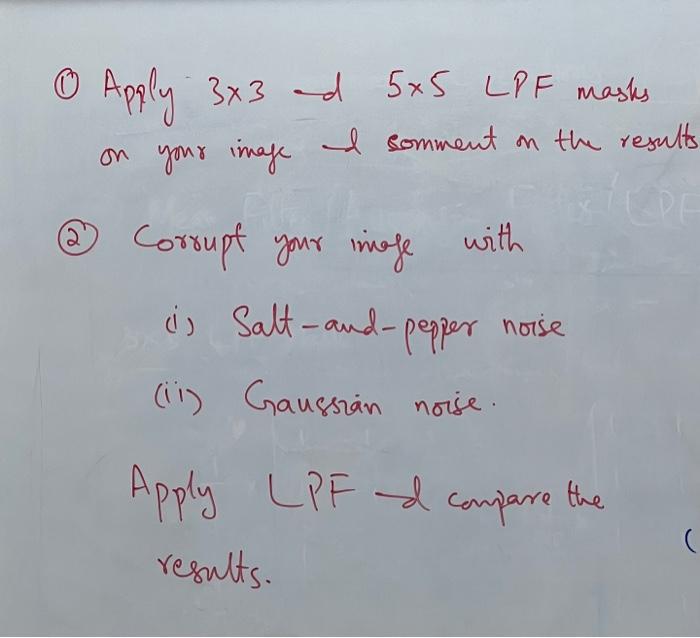 ① Apply 3x3 & 5x5 LPF masks
on your image & comment on the results
② Corrupt your image with
(i) Salt-and-pepper noise
(ii) Gaussian noise.
Apply LPF & compare the
results.
(